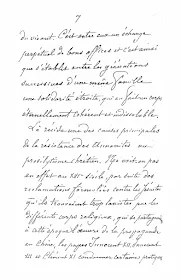 7
du vivant. C'est entre eux un échange
perpétuel de bons offices et c'est ainsi
que s'établit entre les générations
successives d'une même famille
une solidarité étroite, qui en fait un corps
éternellement cohérent et indissoluble.
Là réside une des causes principales
de la résistance des Annamites au
prosélytisme chrétien. On voit
en effet au XVIIe siècle, par suite des
réclamations formulées contre les Jésuites
qu'ils trop laxistes par les
différents corps religieux, qui se partageaient
à cette époque l'œuvre de la propagande
en Chine, les papes Innocent XII,
XI et Clément XI condamner certaines pratiques